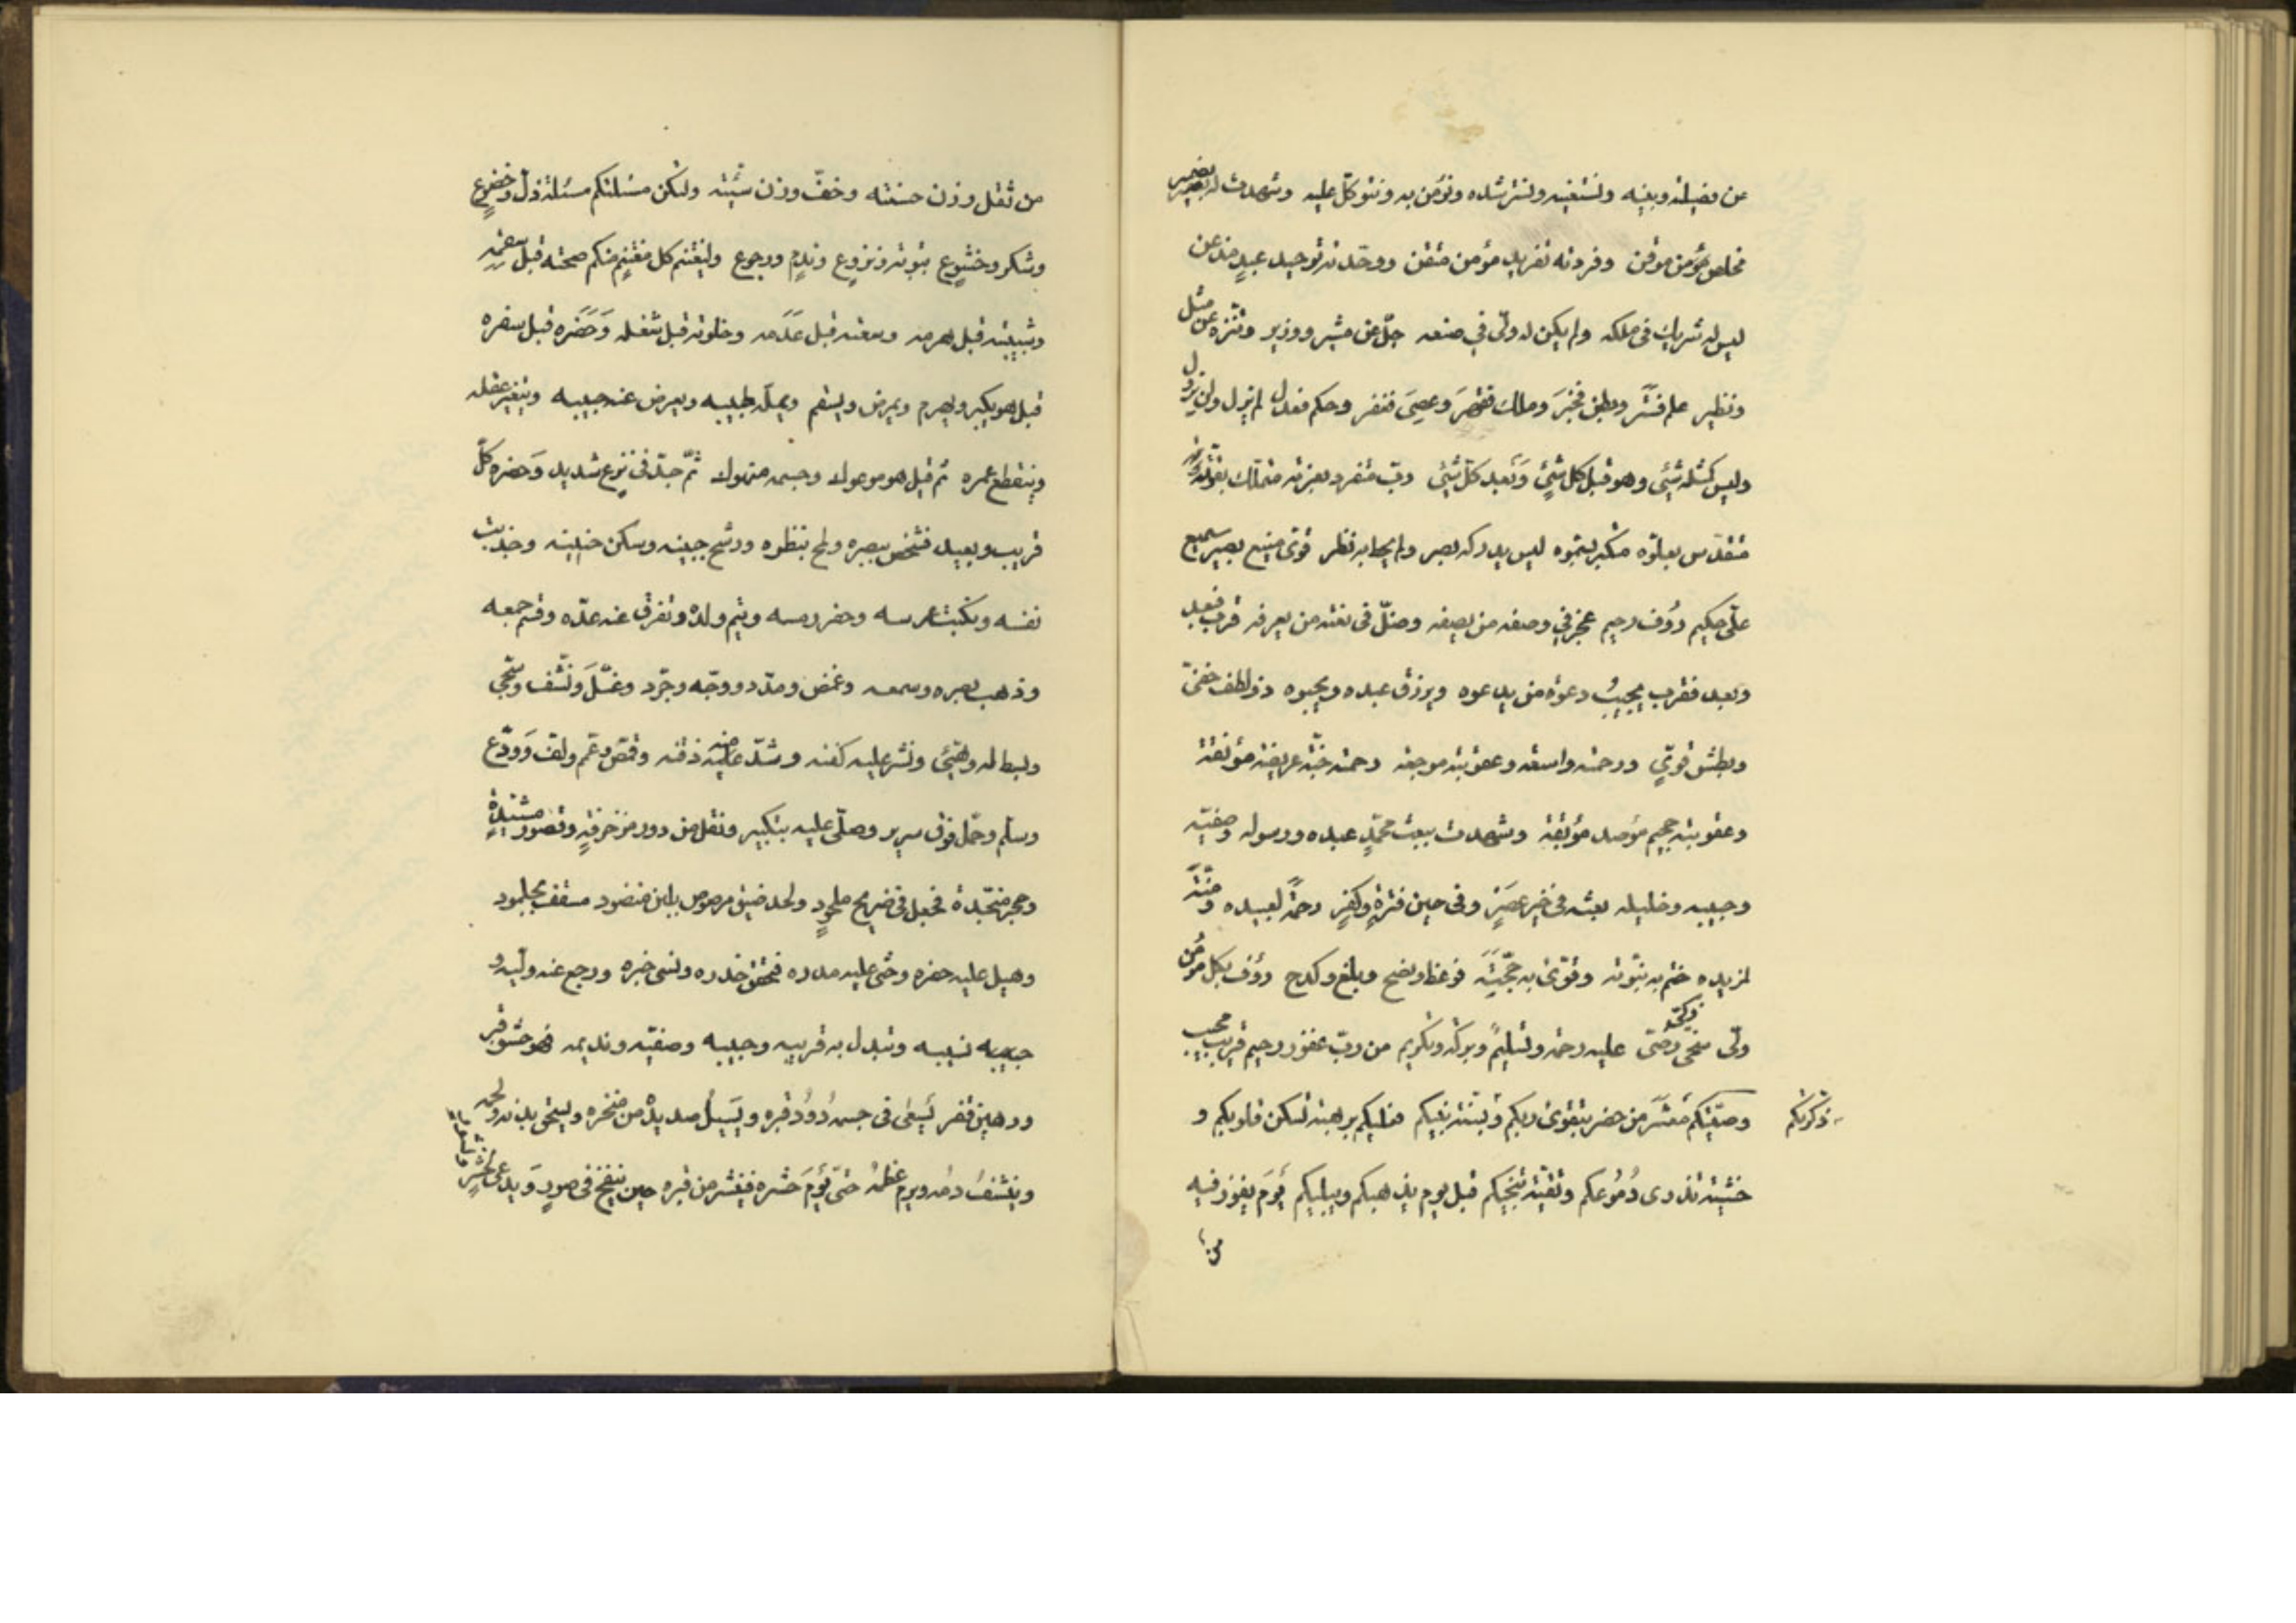 عن فصیلته وبنیه ونستعینه ونسترشده ونؤمن به ونتوکّل علیه وشهدت له بضمیر
مخلص مؤمن موقن وفردته تفرید مؤمن متقن ووحّدته توحید عبد مذعن
لیس له شریك فی ملکه ولم یکن له ولیّ فی صنعه جلّ عن مشیر ووزیر وتنزه عن مثل
ونظیر علم فستر وبطن فخبر وملك فقهر وعصی فغفر وحکم فعدل لم یزل ولن یزول
ولیس کمثله شیئی وهو قبل کل شیئ وبعد کلّ شیئی ربّ متفرد بعزته متملك بقوّته
متقدس بعلوّه متکبر بسموه لیس یدرکه بصر ولم یحط به نظر قوی منیع بصیر سمیع
علیّ حکیم رؤف رحیم عجز فی وصفه من یصفه وضلّ فی نعته من یعرفه قرب فبعد
وبعد فقرب یجیب دعوة من یدعوه ویرزق عبده ویحبوه ذو لطف خفیّ
وبطش قویّ ورحمة واسعة وعقوبة موجعة رحمته جنّة عریضة مؤنقة
وعقوبته جحیم مؤصدة موبقة وشهدت ببعث محمّدٍ عبده ورسوله وصفیّه
وحبیبه وخلیله بعثه فی خیر عصر وفی حین فترة وکفر رحمة لعبیده ومنّة
لمزیده ختم به نبوّته وقوّی به حجّته فوعظ ونصح وبلغ وکدح رؤف بکل مؤمن
ولیّ سخی زکیّ رضیّ علیه رحمة وتسلیم وبرکة وتکریم من ربّ غفور رحیم قریب مجیب
وصیّتکم معشر من حضر بتقوی ربکم وبسنّة نبیکم فعلیکم برهبة تسکن قلوبکم و
ذکرتکم
خشیة تذری دموعکم وتقیّة تنجیکم قبل یوم یذهلکم ویبلیکم یوم یفوز فیه
من
من ثقل وزن حسنته وخفّ وزن سیّئته ولتکن مسئلتکم مسئلة ذلّ وخضوع
وشکر وخشوع بتوبة ونزوع وندم ورجوع ولیغتنم کل مغتنم منکم صحته قبل سقمه
وشبیبته قبل هرمه وسعته قبل عدمه وخلوته قبل شغله وحضره قبل سفره
قبل هو یکبر ویهرم ویمرض ویسقم ویملّه طبیبه ویعرض عنه حبیبه ویتغیر عقله
وینقطع عمره ثم قیل هو موعوك وجسمه منهوك ثمّ جدّ فی نزع شدید وحضره کلّ
قریب وبعید فشخص ببصره وطمح بنظره ورشح جبینه وسکن حنینه وجذبت
نفسه ونکبت عرسه وحفر رمسه ویتم ولده وتفرق عنه عدّه وقسم جمعه
وذهب بصره وسمعه وغمض ومدّد ووجّه وجرّد وغسّل ونشّف وسجّی
وبسط له وهیّئ ونشر علیه کفنه وشدّ علیه منه ذقنه وقمّص وعمّم ولفّ وودّع
وسلّم وحمّل فوق سریر وصلّی علیه بتکبیر ونقل من دور مزخرفة وقصور مشیّدة
وحجر منجّدة فجعل فی ضریح ملحود ولحد ضیق مرصوص بلبن منضود مسقف بجلمود
وهیل علیه حفره وحثی علیه مدره فتحقق حذره ونسی خبره ورجع عنه ولیّه و
حبیبه نسیبه وتبدل به قریبه وحبیبه وصفیّه وندیمه فهو حشو قبر
ورهین قفر یسعی فی جسمه دود قبره ویسیل صدیده من منخره ویسحق بدنه ولحمه
وینشف دمه ویرم عظمه حتّی یوم حشره فینشر من قبره حین ینفخ فی صور ویدعی لحشر